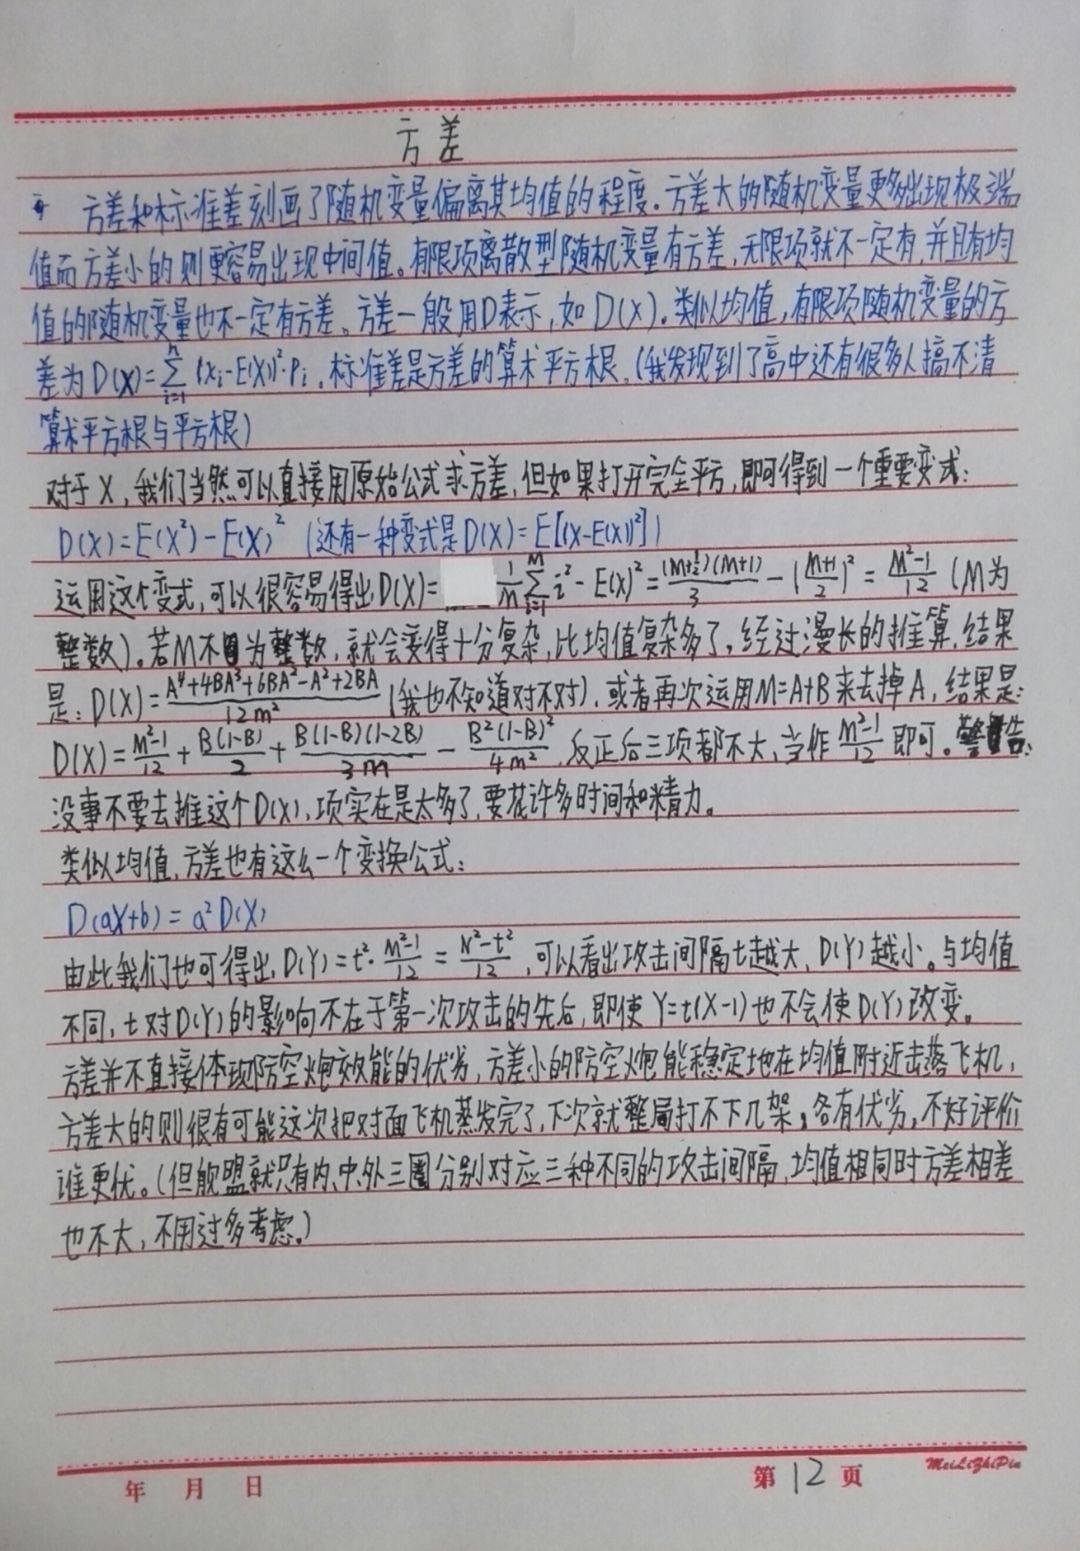 方差
方差和标准差刻画了随机变量偏离其均值的程度.方差大的随机变量更多出现极端
值而方差小的则更容易出现中间值。有限项离散型随机变量有方差,无限项就不一定有,并且有均
值的随机变量也不一定有方差。方差一般用D表示,如D(X).类似均值,有限项随机变量的方
差为D(X)=∑_{i=1}^{n}(x_i-E(X))²·P_i,标准差是方差的算术平方根.(我发现到了高中还有很多人搞不清
算术平方根与平方根)
对于X,我们当然可以直接用原始公式求方差,但如果打开完全平方,即可得到一个重要变式:
D(X)=E(X²)-E(X)² (还有一种变式是D(X)=E[(X-E(X))²])
运用这个变式,可以很容易得出D(X)= 1/M ∑_{i=1}^{M} i²-E(X)²=(M+1/2)(M+1)/3-(M+1/2)²=M²-1/12 (M为
整数)。若M不为整数,就会变得十分复杂,比均值复杂多了,经过漫长的推算,结果
是:D(X)=A⁴+4BA³+6BA²-A²+2BA/12m² (我也不知道对不对),或者再次运用M=A+B来去掉A,结果是:
D(X)=M²-1/12+B(1-B)/2+B(1-B)(1-2B)/3M-B²(1-B)²/4m²,反正后三项都不大,当作M²-1/12即可。警告:
没事不要去推这个D(X),项实在是太多了,要花许多时间和精力。
类似均值,方差也有这么一个变换公式:
D(aX+b)=a²D(X)
由此我们也可得出,D(Y)=t²·M²-1/12=N²-t²/12,可以看出攻击间隔t越大,D(Y)越小。与均值
不同,t对D(Y)的影响不在于第一次攻击的先后,即使Y=t(X-1)也不会使D(Y)改变。
方差并不直接体现防空炮效能的优劣,方差小的防空炮能稳定地在均值附近击落飞机,
方差大的则很有可能这次把对面飞机蒸发完了,下次就整局打不下几架,各有优劣,不好评价
谁更优。(但舰盟就只有内、中、外三圈分别对应三种不同的攻击间隔,均值相同时方差相差
也不大,不用过多考虑。)
年 月 日
第12页
MeiLiZhiPin